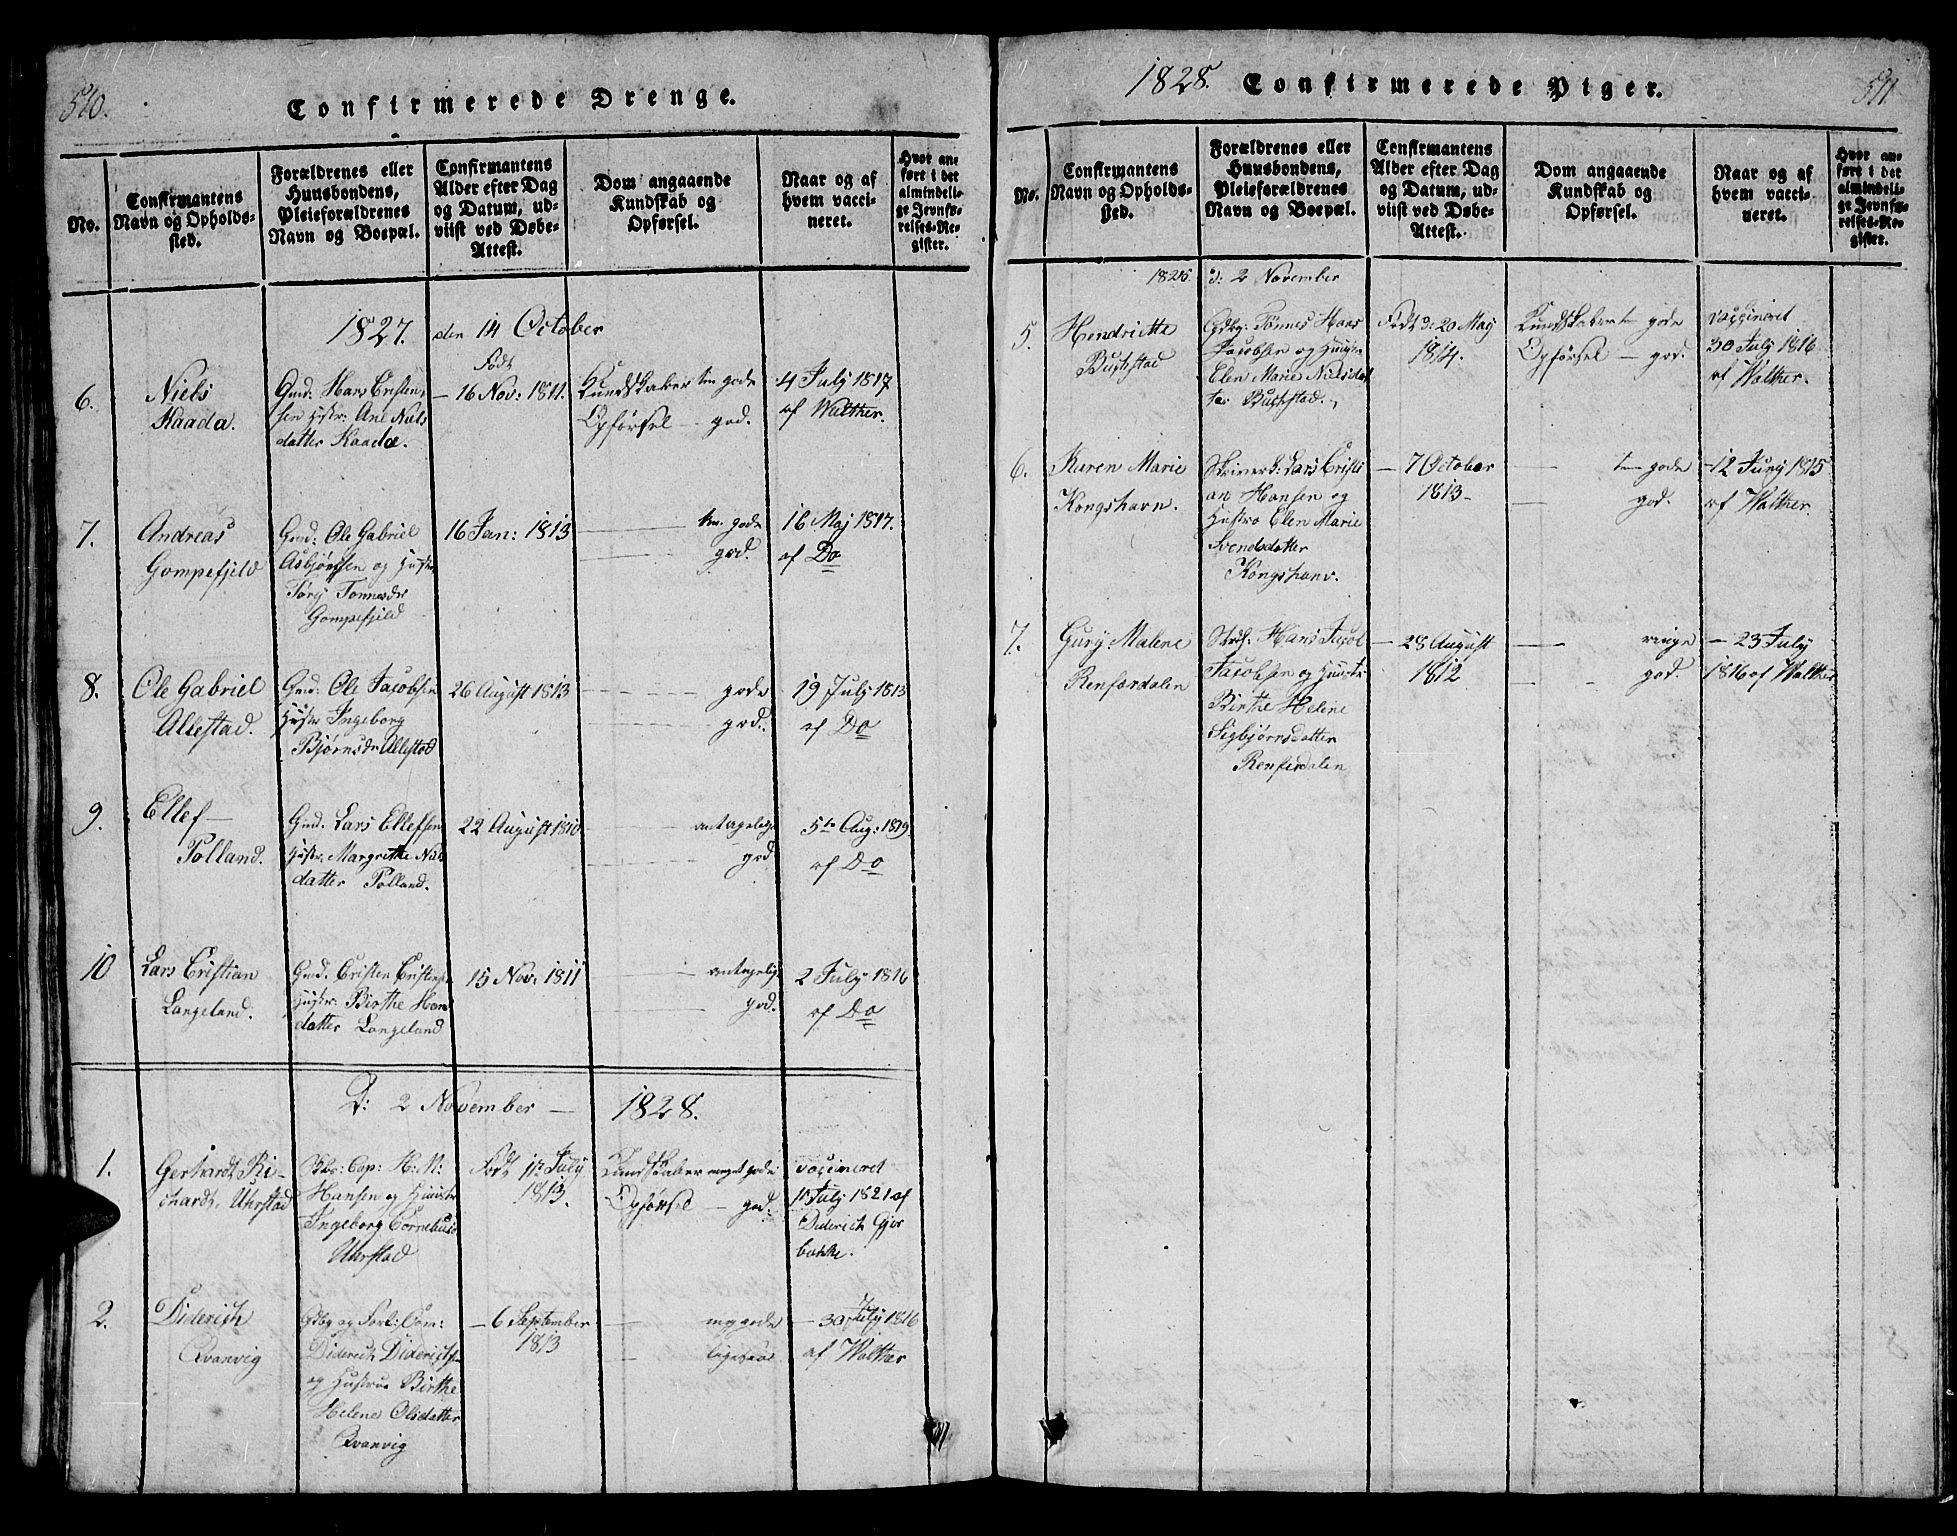 510.
Confirmerede Drenge.
No.
Confirmantens Navn og Opholds-sted.
Forældrenes eller Huusbondens, Pleieforældrenes Navn og Boepæl.
Confirmantens Alder efter Dag og Datum, ud-viist ved Døbe-Attest.
Dom angaaende Kundskab og Opførsel.
Naar og af hvem vacci-neret.
Hvor an-ført i det almindeli-ge Jevnfø-relses-Re-gister.
1827. den 14 October
6.
Niels
Kaada.
Gmd: Hans Cristen,
sen Hustr: Ane Niels
datter Kaada.
Født
— 16 Nov: 1811.
Kundskaber tem gode
Opførsel — god.
4 July 1817
af Walther.
7.
Andreas
Gompefjeld
Gmd: Ole Gabriel
Asbjørnsen og Hustr
Tory Tønnesdr
Gompefjeld
16 Jan: 1813
tem. gode
god.
16 Maj 1817.
af Do
8.
Ole Gabriel
Allestad.
Gmd: Ole Jacobsen
Hustr Ingeborg
Bjørnsdr Allestad
26 August 1813
gode
god.
19 July 1813
af Do
9.
Ellef —
Tolland.
Gmd. Lars Ellefsen
Hustr. Margrethe Nils
datter Tolland.
22 August 1810
antagelig
god
5te Aug: 1819.
af Do
10
Lars Cristian
Langeland.
Gmd. Cristen Cristens
Hustr: Birthe Hans
datter Langeland
15 Nov. 1811
antagelig
god.
2 July 1816
af Do
D: 2 November — 1828.
1.
Gerhardt Ri-
chardt. Uhrstad
Cap: H: N:
Hansen og Hustr
Ingeborg Cornelius
Uhrstad
Født 11te July
1813.
Kundskaber meget gode
Opførsel — god.
vaccineret
11 July 1821 af
Diderich Gjer
bakke.
2.
Diderich
Qvanvig
Gdbg og Forl: Com:
Diderich Diderichs
og Hustrue Birthe
Helene Olsdatter
Qvanvig
— 6 September
1813
mg gode
ligesaa
— 30 July 1816
af Walther
1828. Confirmerede Piger.
511
No.
Confirmantens Navn og Opholds-sted.
Forældrenes eller Huusbondens, Pleieforældrenes Navn og Boepæl.
Confirmantens Alder efter Dag og Datum, ud-viist ved Døbe-Attest.
Dom angaaende Kundskab og Opførsel.
Naar og af hvem vacci-neret.
Hvor an-ført i det almindeli-ge Jevnfø-relses-Re-gister.
1828. d: 2 November
5.
Hendriette
Bugtestad
Gdbg: Tønnes Haas
Jacobsen og Hustr
Elen Marie Nielsdat
ter
Født d: 20 May
1814.
Kundskaber tem gode
Opførsel — god.
vaccineret
30 July 1816
af Walther.
6.
Karen Marie
Kongshavn.
Lars Cristi
an Hansen og
Hustro Elen Marie
Svendsdatter
Kongshavn.
— 7 October
1813 —
tem gode
god.
— 12 Juny 1815
af Walther.
7.
Gury Malene
Renferdalen
Hans Jacob
Jacobsen og Hustr
Birthe Helene
Sigbjørnsdatter
Renferdalen
— 28 August
1812
ringe
god.
— 23 July
1816 af Walther